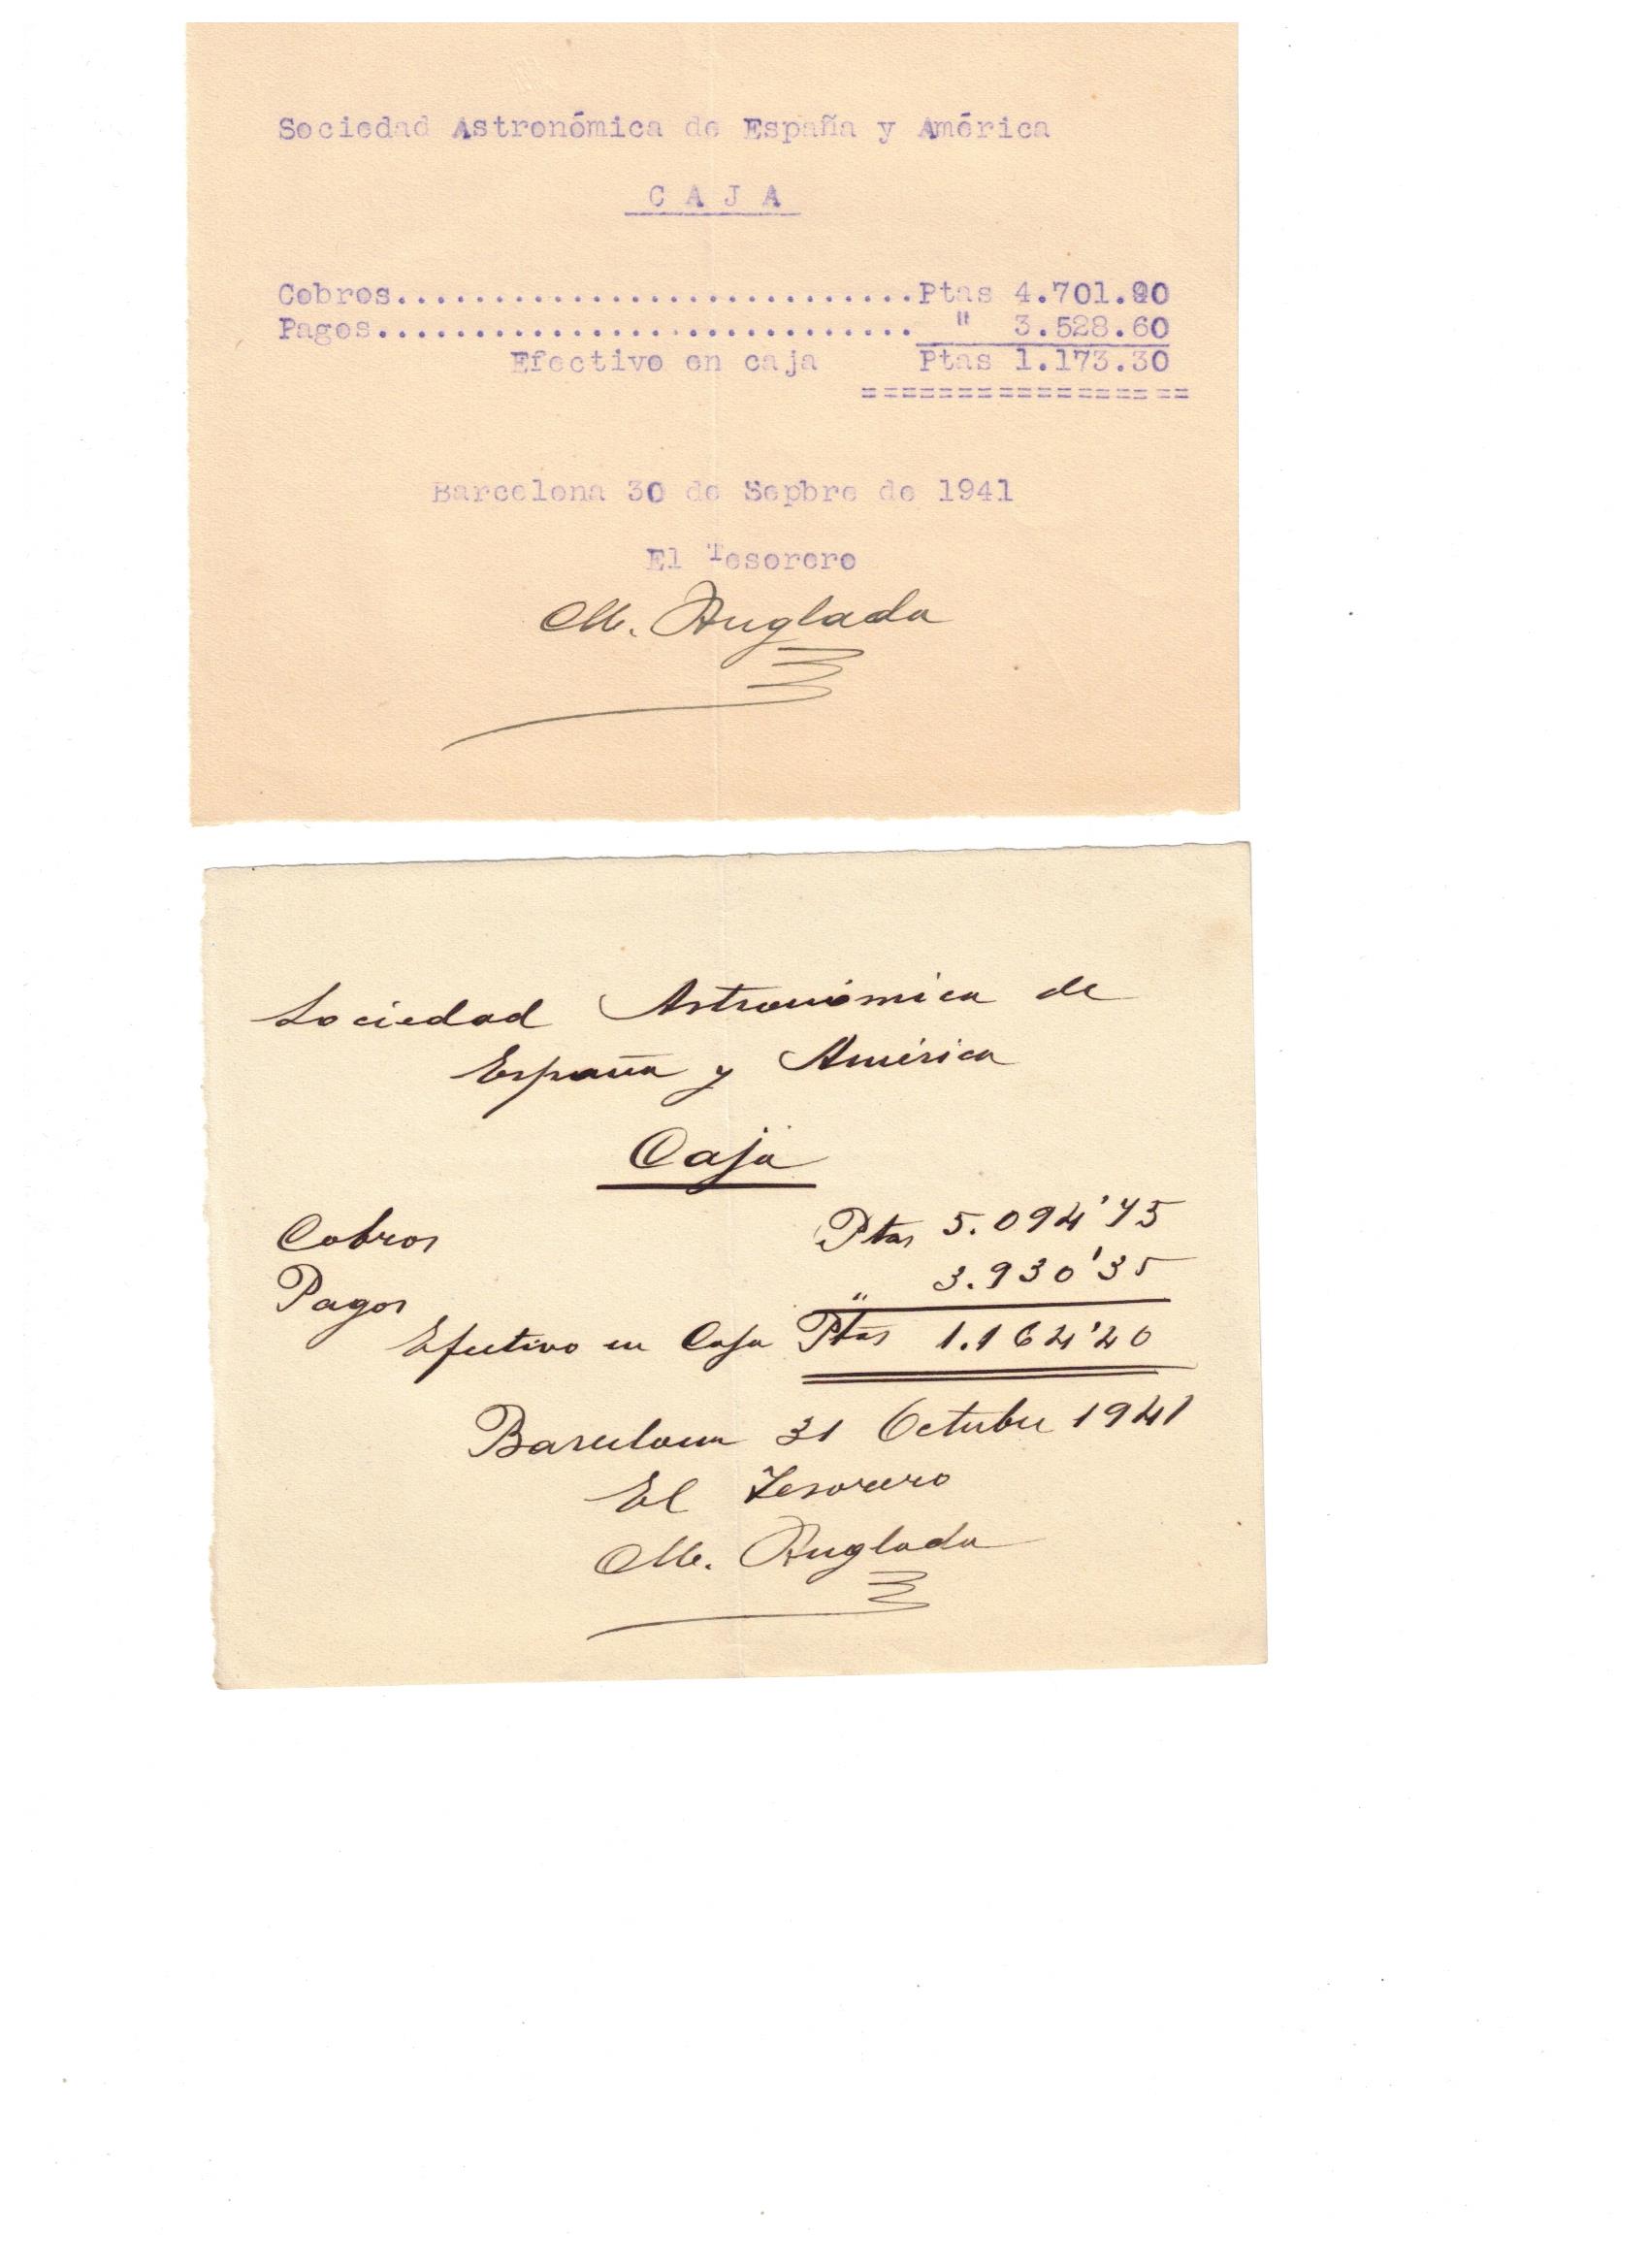 Sociedad Astronómica de España y América
C A J A
Cobros...........................Ptas 4.701.90
Pagos............................ " 3.528.60
Efectivo en caja Ptas 1.173.30
=================
Barcelona 30 de Sepbre de 1941
El Tesorero
M. Anglada
Sociedad Astronómica de
España y América
Caja
Cobros Ptas 5.094'75
Pagos " 3.930'35
Efectivo en Caja Ptas 1.164'40
Barcelona 31 Octubre 1941
El Tesorero
M. Anglada